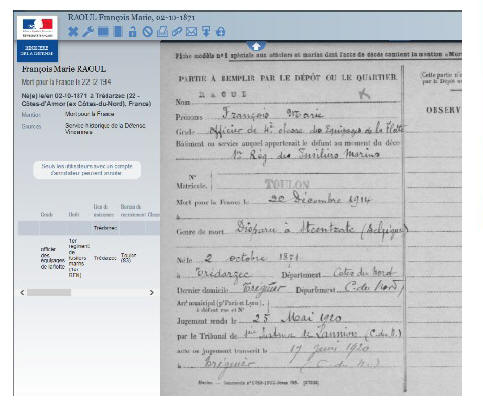 RAOUL François Marie, 02-10-1871
MINISTÈRE
DE LA DÉFENSE
François Marie RAOUL
Mort pour la France le 22-12-1914
Né(e) le/en 02-10-1871 à Trédarzec (22 -
Côtes-d'Armor (ex Côtes-du-Nord), France)
Mention Mort pour la France
Sources Service historique de la Défense
Vincennes
Seuls les utilisateurs avec un compte
d'annotateur peuvent annoter
Grade Unité Lieu de naissance Bureau de recrutement Classe
Trédarzec
officier des équipages de la flotte 1er régiment de fusiliers marins (1er RFM) Trédarzec Toulon (83)
Fiche modèle n° 1 spéciale aux officiers et marins dont l'acte de décès contient la mention « Mor
PARTIE À REMPLIR PAR LE DÉPÔT OU LE QUARTIER
(Cette partie n'
par le Dépôt
OBSERV
Nom RAOUL
Prénoms François Marie
Grade Officier de 4e classe des Equipages de la Flotte
Bâtiment ou service auquel appartenait le défunt au moment du décès
1er Rég. des Fusiliers Marins
N°
Matricule. TOULON
Mort pour la France le 22 Décembre 1914
à
Genre de mort Disparu à (Belgique)
Né le 2 octobre 1871
à Trédarzec Département Côtes du Nord
Dernier domicile Tréguier Département (C. du Nord)
Arrt municipal (pr Paris et Lyon).
à défaut rue et N°
Jugement rendu le 25 Mai 1920
par le Tribunal de 1ère Instance de Lannion (C. du N.)
acte ou jugement transcrit le 17 Juin 1920
à Tréguier (C. du N.)